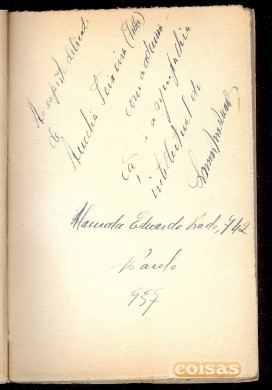 Ao espírito delicado
de
Amelia Teixeira (Filho)
com a admira-
ção e a sympathia
intellectual de
Alameda Eduardo Prado, 742
S. Paulo
937
coisas